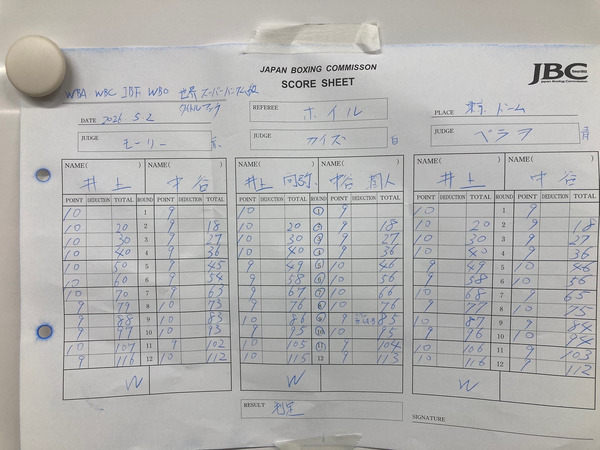 JAPAN BOXING COMMISSON
SCORE SHEET
JBC
Japan Boxing Commission
WBA WBC IBF WBO 世界スーパーバンタム級
タイトルマッチ
DATE 2026 5.2
REFEREE ホイル
PLACE 東京ドーム
JUDGE モーリー
JUDGE カイズ 白
JUDGE ベラヲ 青
NAME( ) NAME( ) NAME( ) NAME( ) NAME( ) NAME( )
井上 中谷 井上 尚弥 中谷 潤人 井上 中谷
POINT DEDUCTION TOTAL ROUND POINT DEDUCTION TOTAL POINT DEDUCTION TOTAL ROUND POINT DEDUCTION TOTAL POINT DEDUCTION TOTAL ROUND POINT DEDUCTION TOTAL
10 1 9 10 1 9 10 1 9
10 20 2 9 18 10 20 2 9 18 10 20 2 9 18
10 30 3 9 27 10 30 3 9 27 10 30 3 9 27
10 40 4 9 36 10 40 4 9 36 10 40 4 9 36
10 50 5 9 45 9 49 5 10 46 9 49 5 10 46
10 60 6 9 54 9 58 6 10 56 9 58 6 10 56
10 70 7 9 63 9 67 7 10 66 10 68 7 9 65
9 79 8 10 73 9 76 8 10 76 9 77 8 10 75
9 88 9 10 83 10 86 9 9 85 10 87 9 9 84
9 97 10 10 93 9 95 10 10 95 9 96 10 10 94
10 107 11 9 102 10 105 11 9 104 10 106 11 9 103
9 116 12 10 112 10 115 12 9 113 10 116 12 9 112
W W W
RESULT 判定
SIGNATURE